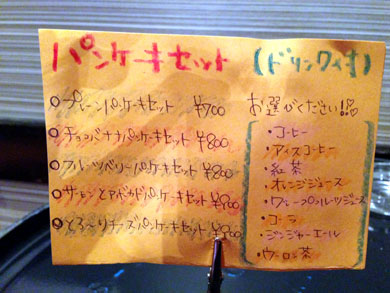 パンケーキセット (ドリンク付)
○プレーンパンケーキセット ¥700
○チョコバナナパンケーキセット ¥800
○フルーツベリーパンケーキセット ¥800
○サーモンとアボカドパンケーキセット ¥900
○とろ～りチーズパンケーキセット ¥900
お選びください!!♡
・コーヒー
・アイスコーヒー
・紅茶
・オレンジジュース
・グレープフルーツジュース
・コーラ
・ジンジャーエール
・ウーロン茶